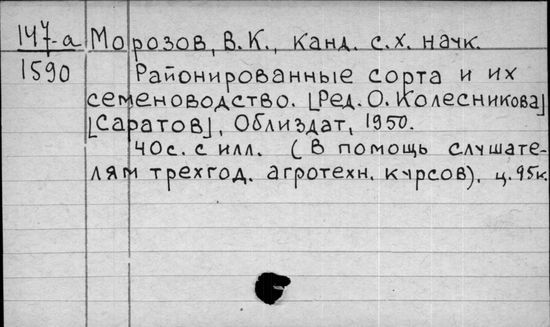 147-а Морозов, В.К., канд. с.х. наук.
1590 Районированные сорта и их
семеноводство. [Ред. О. Колесникова]
[Саратов], Облиздат, 1950.
40с. с илл. (В помощь слушате-
лям трехгод. агротехн. курсов). ц. 95к.